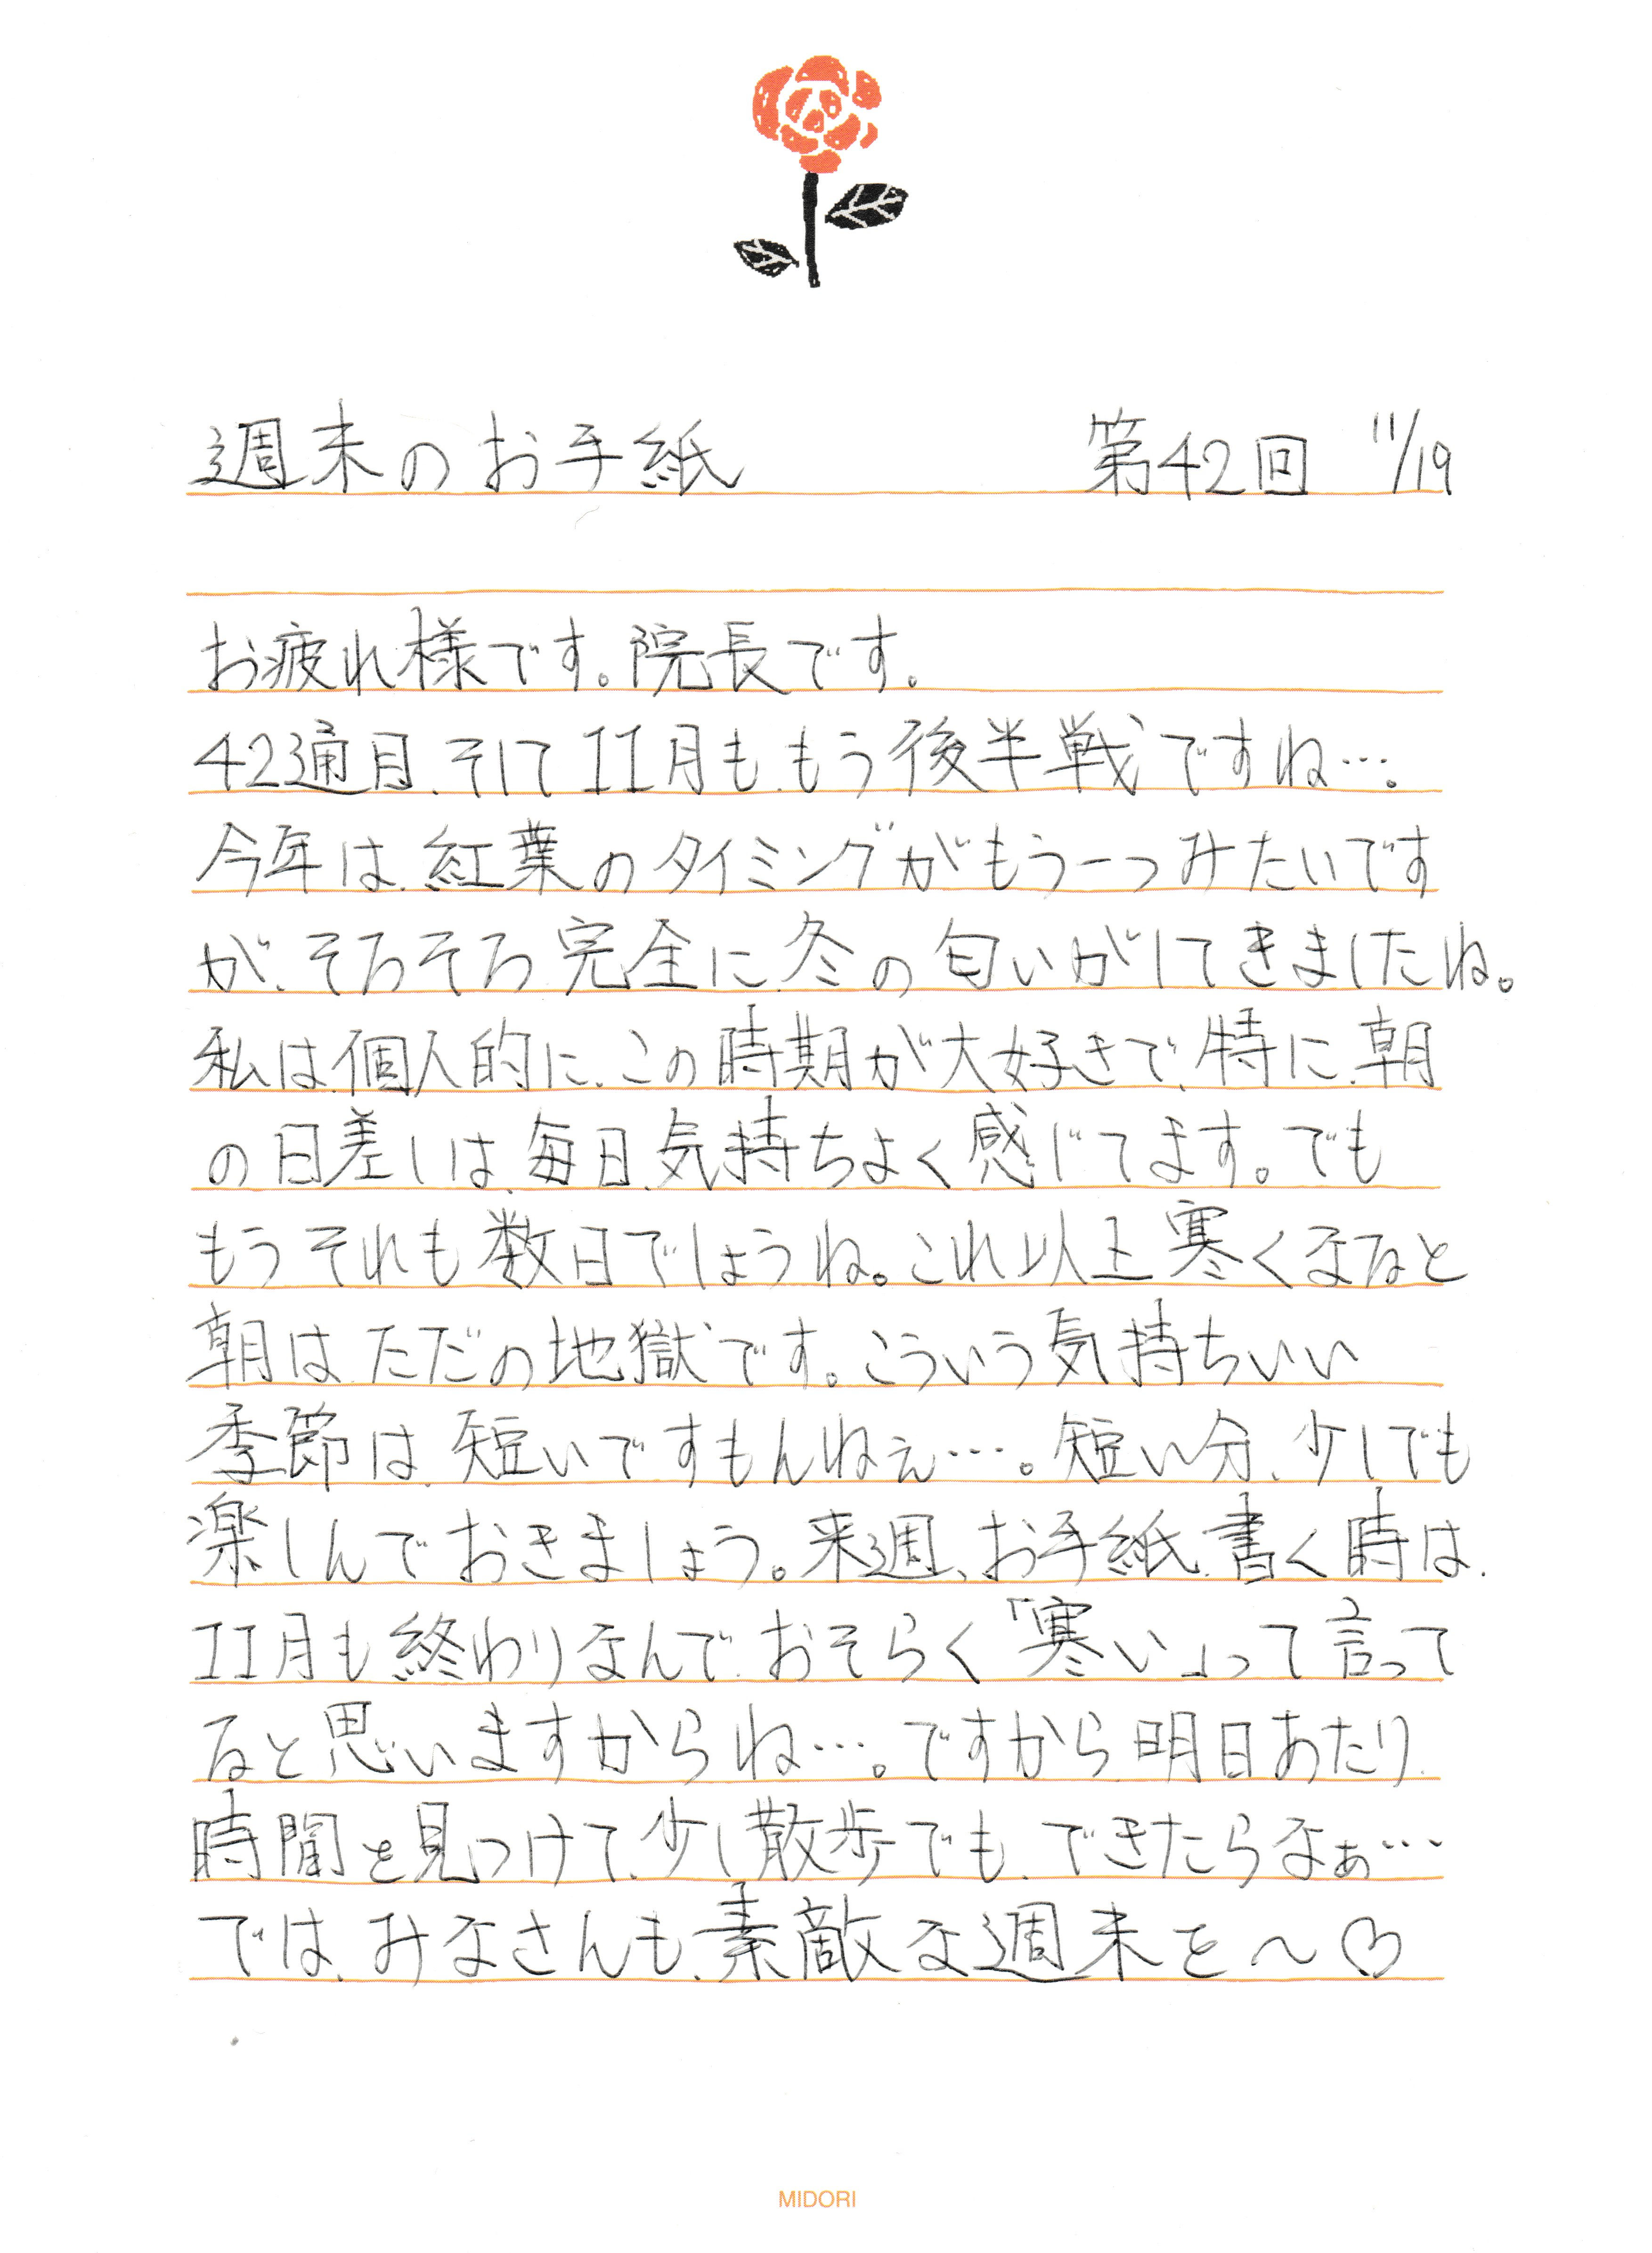 週末のお手紙 第42回 11/19
お疲れ様です。院長です。
42通目、そして11月も、もう後半戦ですね…。
今年は、紅葉のタイミングがもう一つみたいです
が、そろそろ完全に、冬の匂いがしてきましたね。
私は、個人的に、この時期が大好きで、特に、朝
の日差しは、毎日、気持ちよく感じてます。でも
もうそれも数日でしょうね。これ以上寒くなると
朝は、ただの地獄です。こういう気持ちいい
季節は、短いですもんねぇ…。短い分、少しでも
楽しんでおきましょう。来週、お手紙、書く時は、
11月も終わりなんで、おそらく「寒い」って言って
ると思いますからね…。ですから、明日あたり、
時間を見つけて、少し散歩でも、できたらなぁ…
では、みなさんも、素敵な週末を〜♡
MIDORI